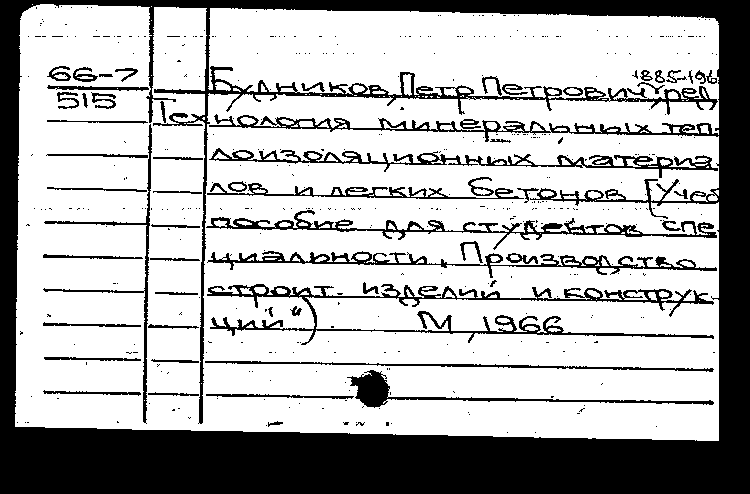 66-7
515
1885-196
Будников, Петр Петрович, ред.
Технология минеральных теп-
лоизоляционных материа-
лов и легких бетонов [Учеб
пособие для студентов спе
циальности „Производство
строит. изделий и конструк-
ций“) М, 1966